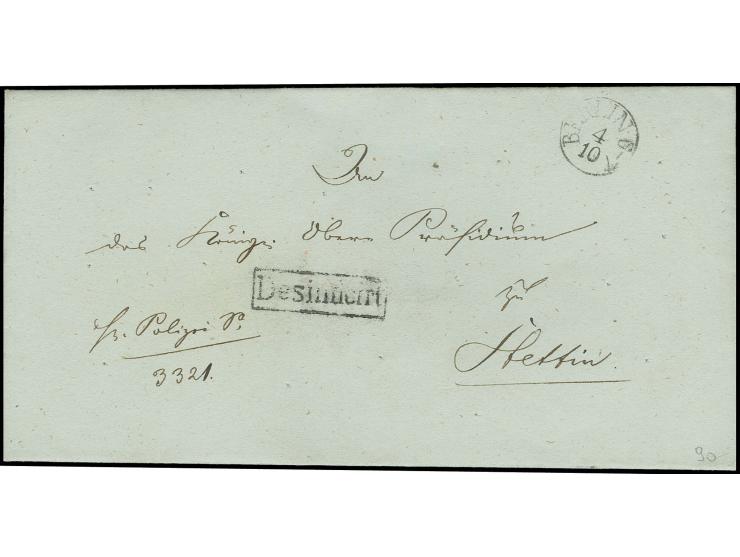 BERLIN 6
4
10
An
das Königl. Ober Präsidium
Desinficirt
zu
fr. Polizei S.
Stettin.
3321.
90